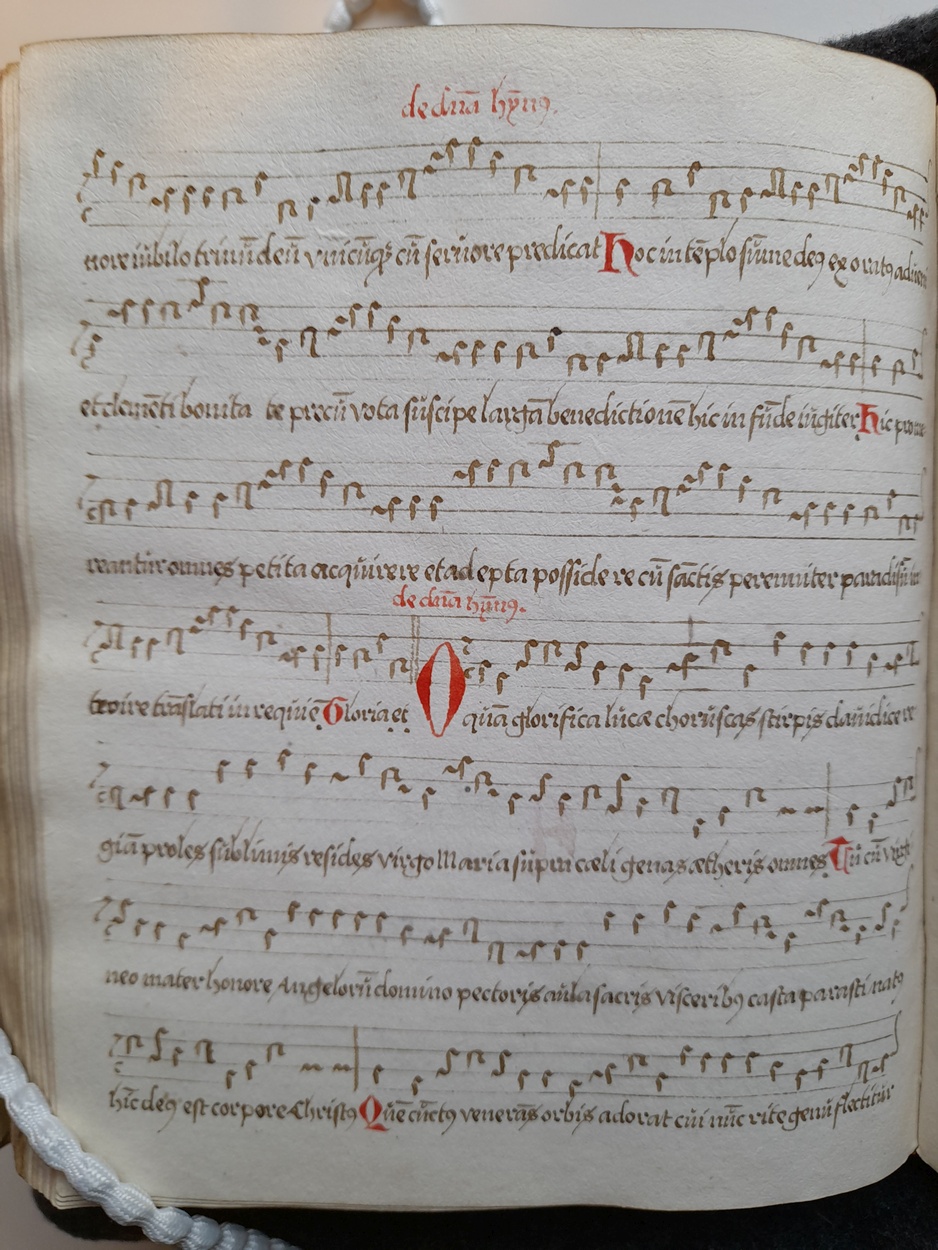 de dn̄a hȳnꝰ.
nore iubilo trinūdeū vnicūqꝫ cū feruore predicat Hoc in tēplo sūme deꝰ exoratꝰ adueni
et clemēti bonita te precū vota suscipe largā benedictionē hic in fūde iugiter Hic prome
reantur omnes petita acquirere et adepta possidere cū sāctis perenniter paradisū in
de dn̄a hȳnꝰ.
troire trāslati in requiē Gloria et O quā glorifica luce choruscas stirpis dauidice re
giā proles sublimis resides virgo Maria supra cæli genas ætheris omnes Tu cū virgi
neo mater honore Angelorū domino pectoris aula sacris visceribꝰ casta parasti natꝰ
hīc deꝰ est corpore Christꝰ Quē cūctꝰ venerās orbis adorat cui nūc rite genu flectitur